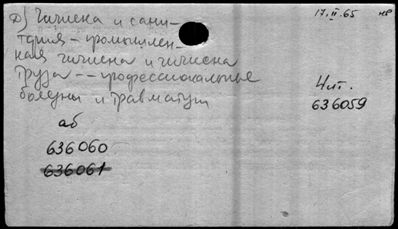 д) Гигиена и сани-
тария - промышлен-
ная гигиена и гигиена
труда -- профессиональные
болезни и травматизм
17.II.65
нв
Чит.
636059
аб
636060
636061